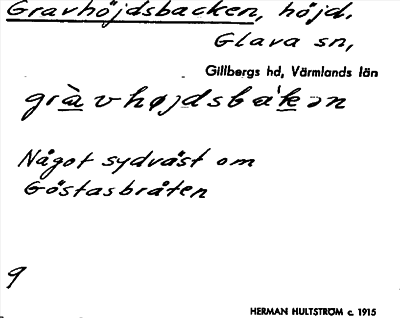 Gravhöjdsbacken, höjd.
Glava sn,
Gillbergs hd, Värmlands län
gràvhøjdsbák̀ən
Något sydväst om
Göstasbråten
9
HERMAN HULTSTRÖM c. 1915